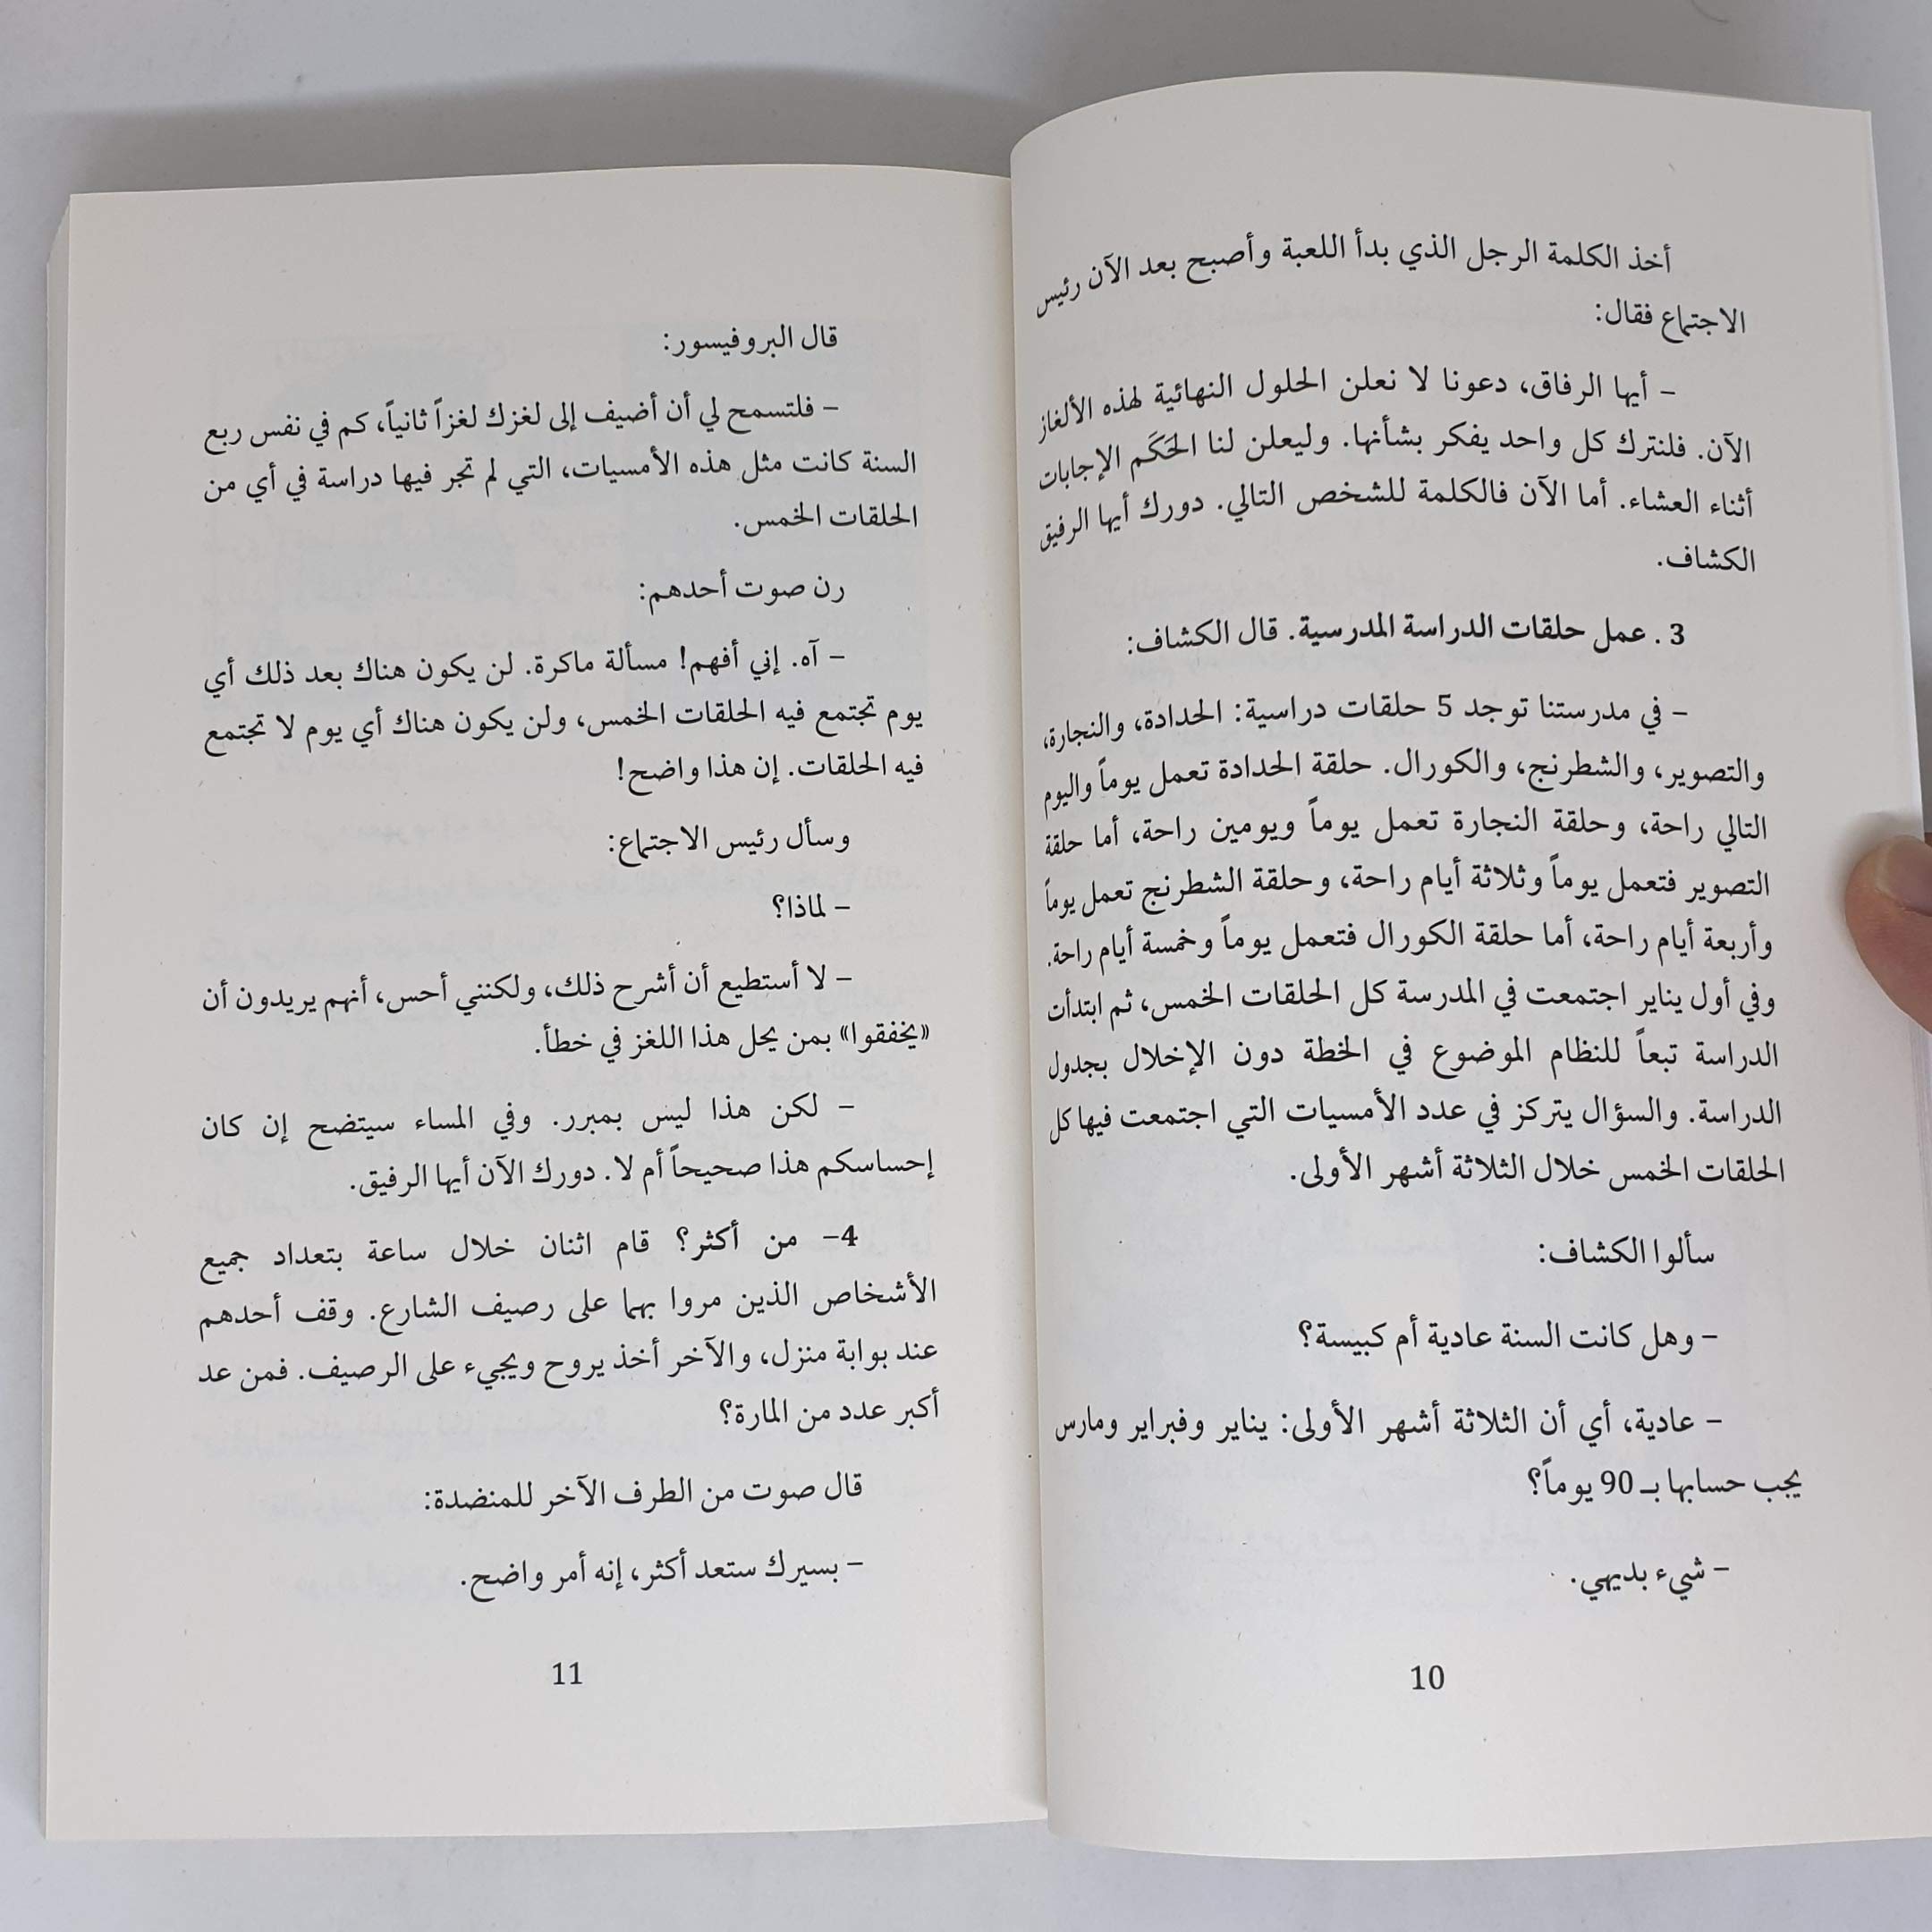 أخذ الكلمة الرجل الذي بدأ اللعبة وأصبح بعد الآن رئيس
الاجتماع فقال:
– أيها الرفاق، دعونا لا نعلن الحلول النهائية لهذه الألغاز
الآن. فلنترك كل واحد يفكر بشأنها. وليعلن لنا الحَكَم الإجابات
أثناء العشاء. أما الآن فالكلمة للشخص التالي. دورك أيها الرفيق
الكشاف.
3 . عمل حلقات الدراسة المدرسية. قال الكشاف:
– في مدرستنا توجد 5 حلقات دراسية: الحدادة، والنجارة،
والتصوير، والشطرنج، والكورال. حلقة الحدادة تعمل يوماً واليوم
التالي راحة، وحلقة النجارة تعمل يوماً ويومين راحة، أما حلقة
التصوير فتعمل يوماً وثلاثة أيام راحة، وحلقة الشطرنج تعمل يوماً
وأربعة أيام راحة، أما حلقة الكورال فتعمل يوماً وخمسة أيام راحة.
وفي أول يناير اجتمعت في المدرسة كل الحلقات الخمس، ثم ابتدأت
الدراسة تبعاً للنظام الموضوع في الخطة دون الإخلال بجدول
الدراسة. والسؤال يتركز في عدد الأمسيات التي اجتمعت فيها كل
الحلقات الخمس خلال الثلاثة أشهر الأولى.
سألوا الكشاف:
– وهل كانت السنة عادية أم كبيسة؟
– عادية، أي أن الثلاثة أشهر الأولى: يناير وفبراير ومارس
يجب حسابها بـ 90 يوماً؟
– شيء بديهي.
10
قال البروفيسور:
– فلتسمح لي أن أضيف إلى لغزك لغزاً ثانياً، كم في نفس ربع
السنة كانت مثل هذه الأمسيات، التي لم تجر فيها دراسة في أي من
الحلقات الخمس.
رن صوت أحدهم:
– آه. إني أفهم! مسألة ماكرة. لن يكون هناك بعد ذلك أي
يوم تجتمع فيه الحلقات الخمس، ولن يكون هناك أي يوم لا تجتمع
فيه الحلقات. إن هذا واضح!
وسأل رئيس الاجتماع:
– لماذا؟
– لا أستطيع أن أشرح ذلك، ولكنني أحس، أنهم يريدون أن
«يخفقوا» بمن يحل هذا اللغز في خطأ.
– لكن هذا ليس بمبرر. وفي المساء سيتضح إن كان
إحساسكم هذا صحيحاً أم لا. دورك الآن أيها الرفيق.
4– من أكثر؟ قام اثنان خلال ساعة بتعداد جميع
الأشخاص الذين مروا بهما على رصيف الشارع. وقف أحدهم
عند بوابة منزل، والآخر أخذ يروح ويجيء على الرصيف. فمن عد
أكبر عدد من المارة؟
قال صوت من الطرف الآخر للمنضدة:
– بسيرك ستعد أكثر، إنه أمر واضح.
11